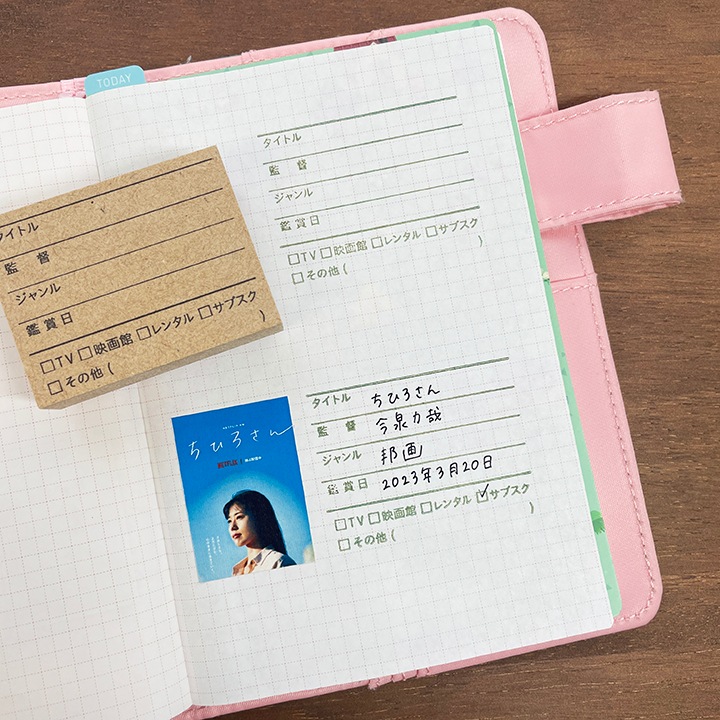 TODAY
タイトル
監 督
ジャンル
鑑賞日
□TV □映画館 □レンタル □サブスク
□その他( )
タイトル
監 督
ジャンル
鑑賞日
□TV □映画館 □レンタル □サブスク
□その他( )
ちひろさん
タイトル ちひろさん
監 督 今泉力哉
ジャンル 邦画
鑑賞日 2023年3月20日
□TV □映画館 □レンタル ☑サブスク
□その他( )